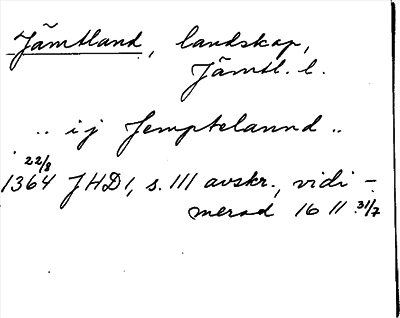 Jämtland, landskap,
Jämtl. l.
.. ij Jemptelannd ..
22/8
1364 JHD1, s. 111 avskr., vidi-
merad 1611 31/7